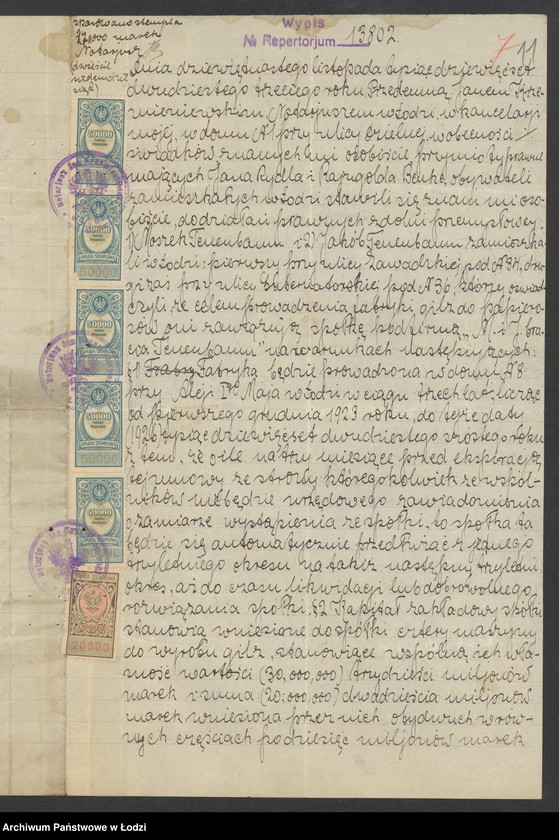 Wypis
№ Repertorjum 13802.
7 11
skasowano stempla
marek
Notarjusz
Dnia dziewiętnastego listopada tysiąc dziewięćset
dwudziestego trzeciego roku. Przedemną Janem Krze-
mieniewskim, Notarjuszem w Łodzi, w kancelarji
mojej, w domu № 1 przy ulicy Dzielnej, w obecności
świadków znanych mi osobiście, przymioty prawne
mających Jana Rydla i Benke, obywateli
zamieszkałych w Łodzi stawili się znani mi oso-
biście, do działań prawnych zdolni przemysłowcy:
1) Moszek Tenenbaum i 2) Jakób Tenenbaum, zamieszka-
li w Łodzi: pierwszy przy ulicy Zawadzkiej pod № 34, dru-
gi zaś przy ulicy Gubernatorskiej pod № 36, którzy oświad-
czyli, że celem prowadzenia fabryki gilz do papiero-
sów oni zawiązują spółkę pod firmą „M. i J. bra-
cia Tenenbaum" na warunkach następujących:
§ 1 Fabryka będzie prowadzona w domu № 8
przy Alei I-go Maja w Łodzi w ciągu trzech lat licząc
od pierwszego grudnia 1923 roku, do tejże daty
1926 tysiąc dziewięćset dwudziestego szóstego roku
z tem, że o ile na trzy miesiące przed ekspiracją
tejumowy ze strony któregokolwiek ze wspól-
ników nie będzie urzędowego zawiadomienia
o zamiarze wystąpienia ze spółki, to spółka ta
będzie się automatycznie przedłużać z jednego
trzyletniego okresu na takiż następny trzyletni
okres, aż do czasu likwidacji lub dobrowolnego
rozwiązania spółki. § 2 Kapitał zakładowy spółki
stanowią wniesione do spółki cztery maszyny
do wyrobu gilz, stanowiące wspólną ich wła-
sność wartości (30,000,000) trzydzieści miljonów
marek i suma (20,000,000) dwadzieścia miljonów
marek wniesiona przez nich obydwuch w rów-
nych częściach po dziesięć miljonów marek
50000
50000
50000
50000
50000
50000
50000
OPŁATA STEMPLOWA
20000
Archiwum Państwowe w Łodzi